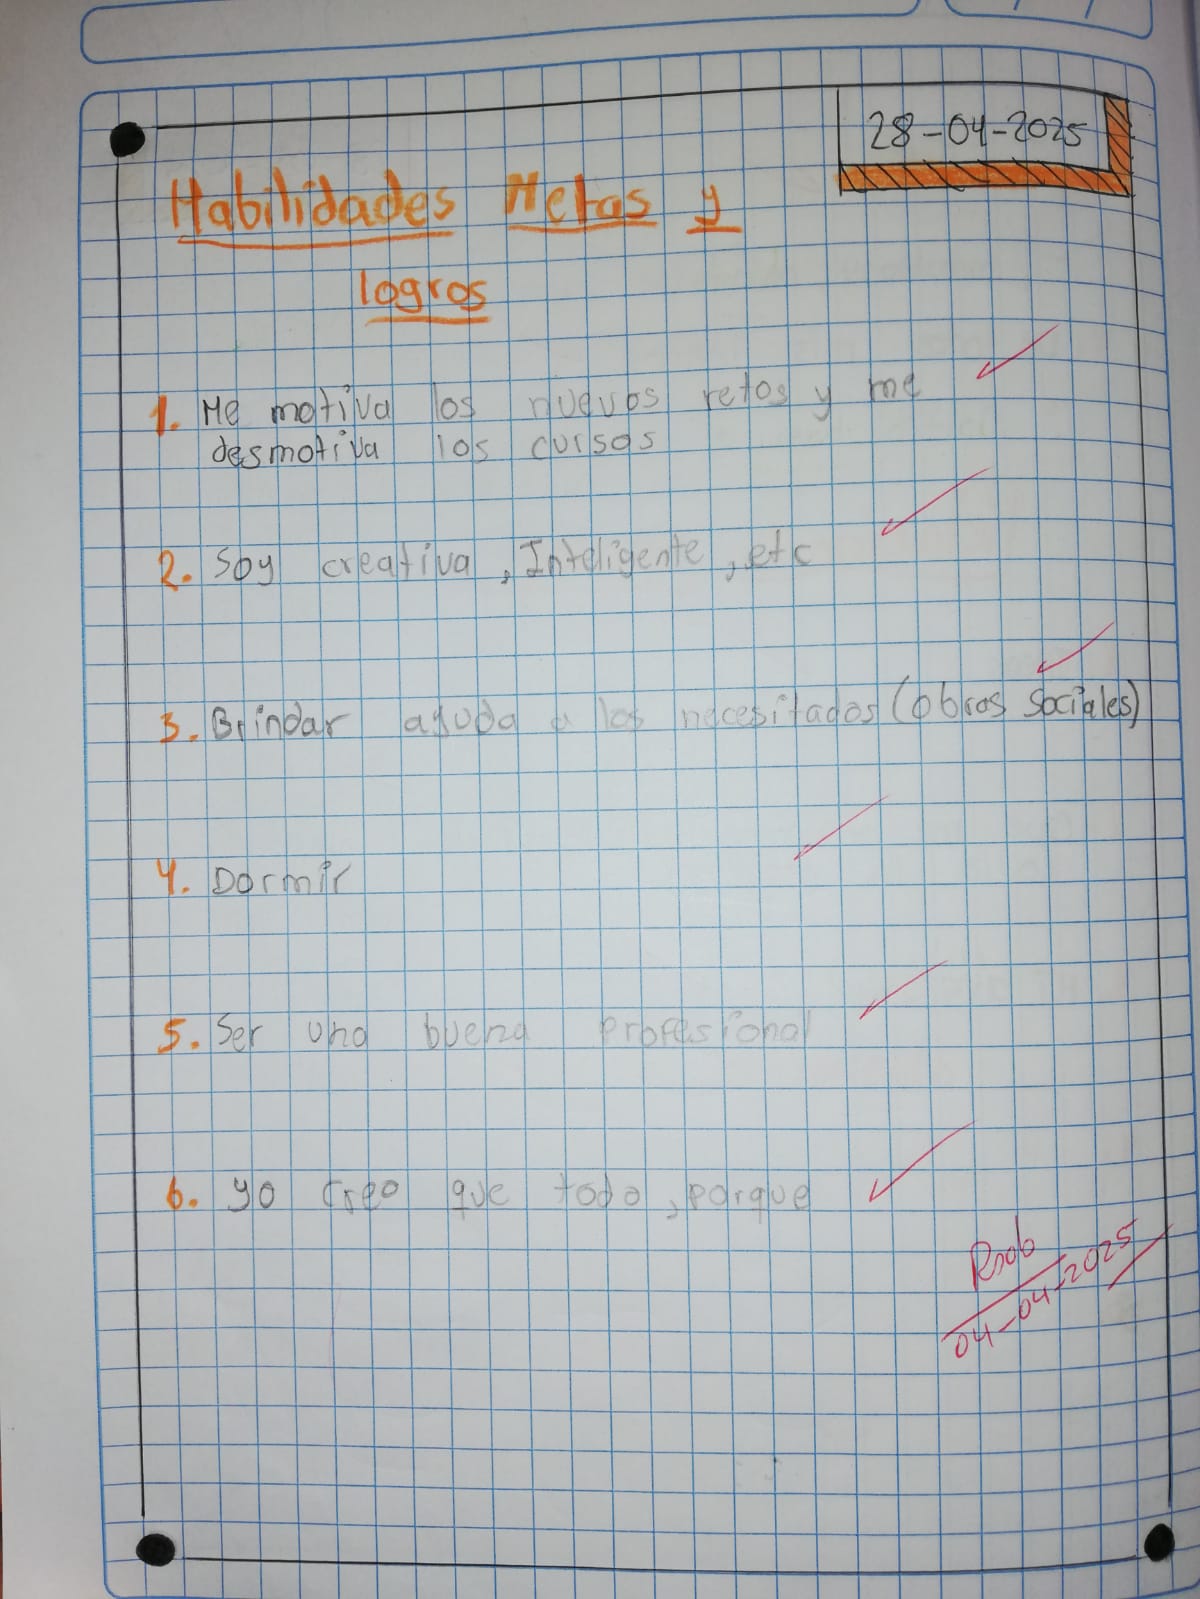 28-04-2025
Habilidades Metas y
logros
1. Me motiva los nuevos retos y me
desmotiva los cursos
2. Soy creativa, Inteligente, etc
3. Brindar ayuda a los necesitados (obras sociales)
4. Dormir
5. Ser una buena profesional
6. yo creo que todo, porque
04-04-2025